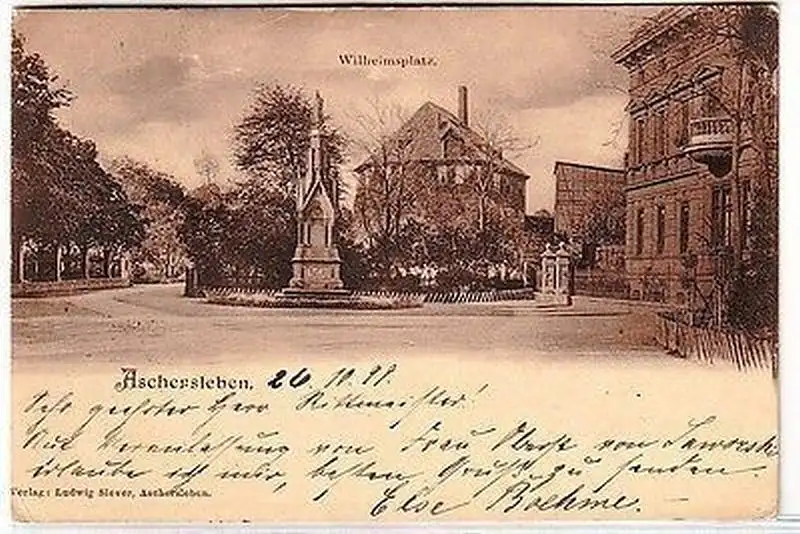 Wilhelmsplatz.
Aschersleben. 26.10.98.
Sehr geehrter Herr Rittmeister!
Auf Veranlassung von Frau Oberst von
erlaube ich mir, besten Gruß zu senden.
Verlag: Ludwig Siever, Aschersleben.
Else Boehme.